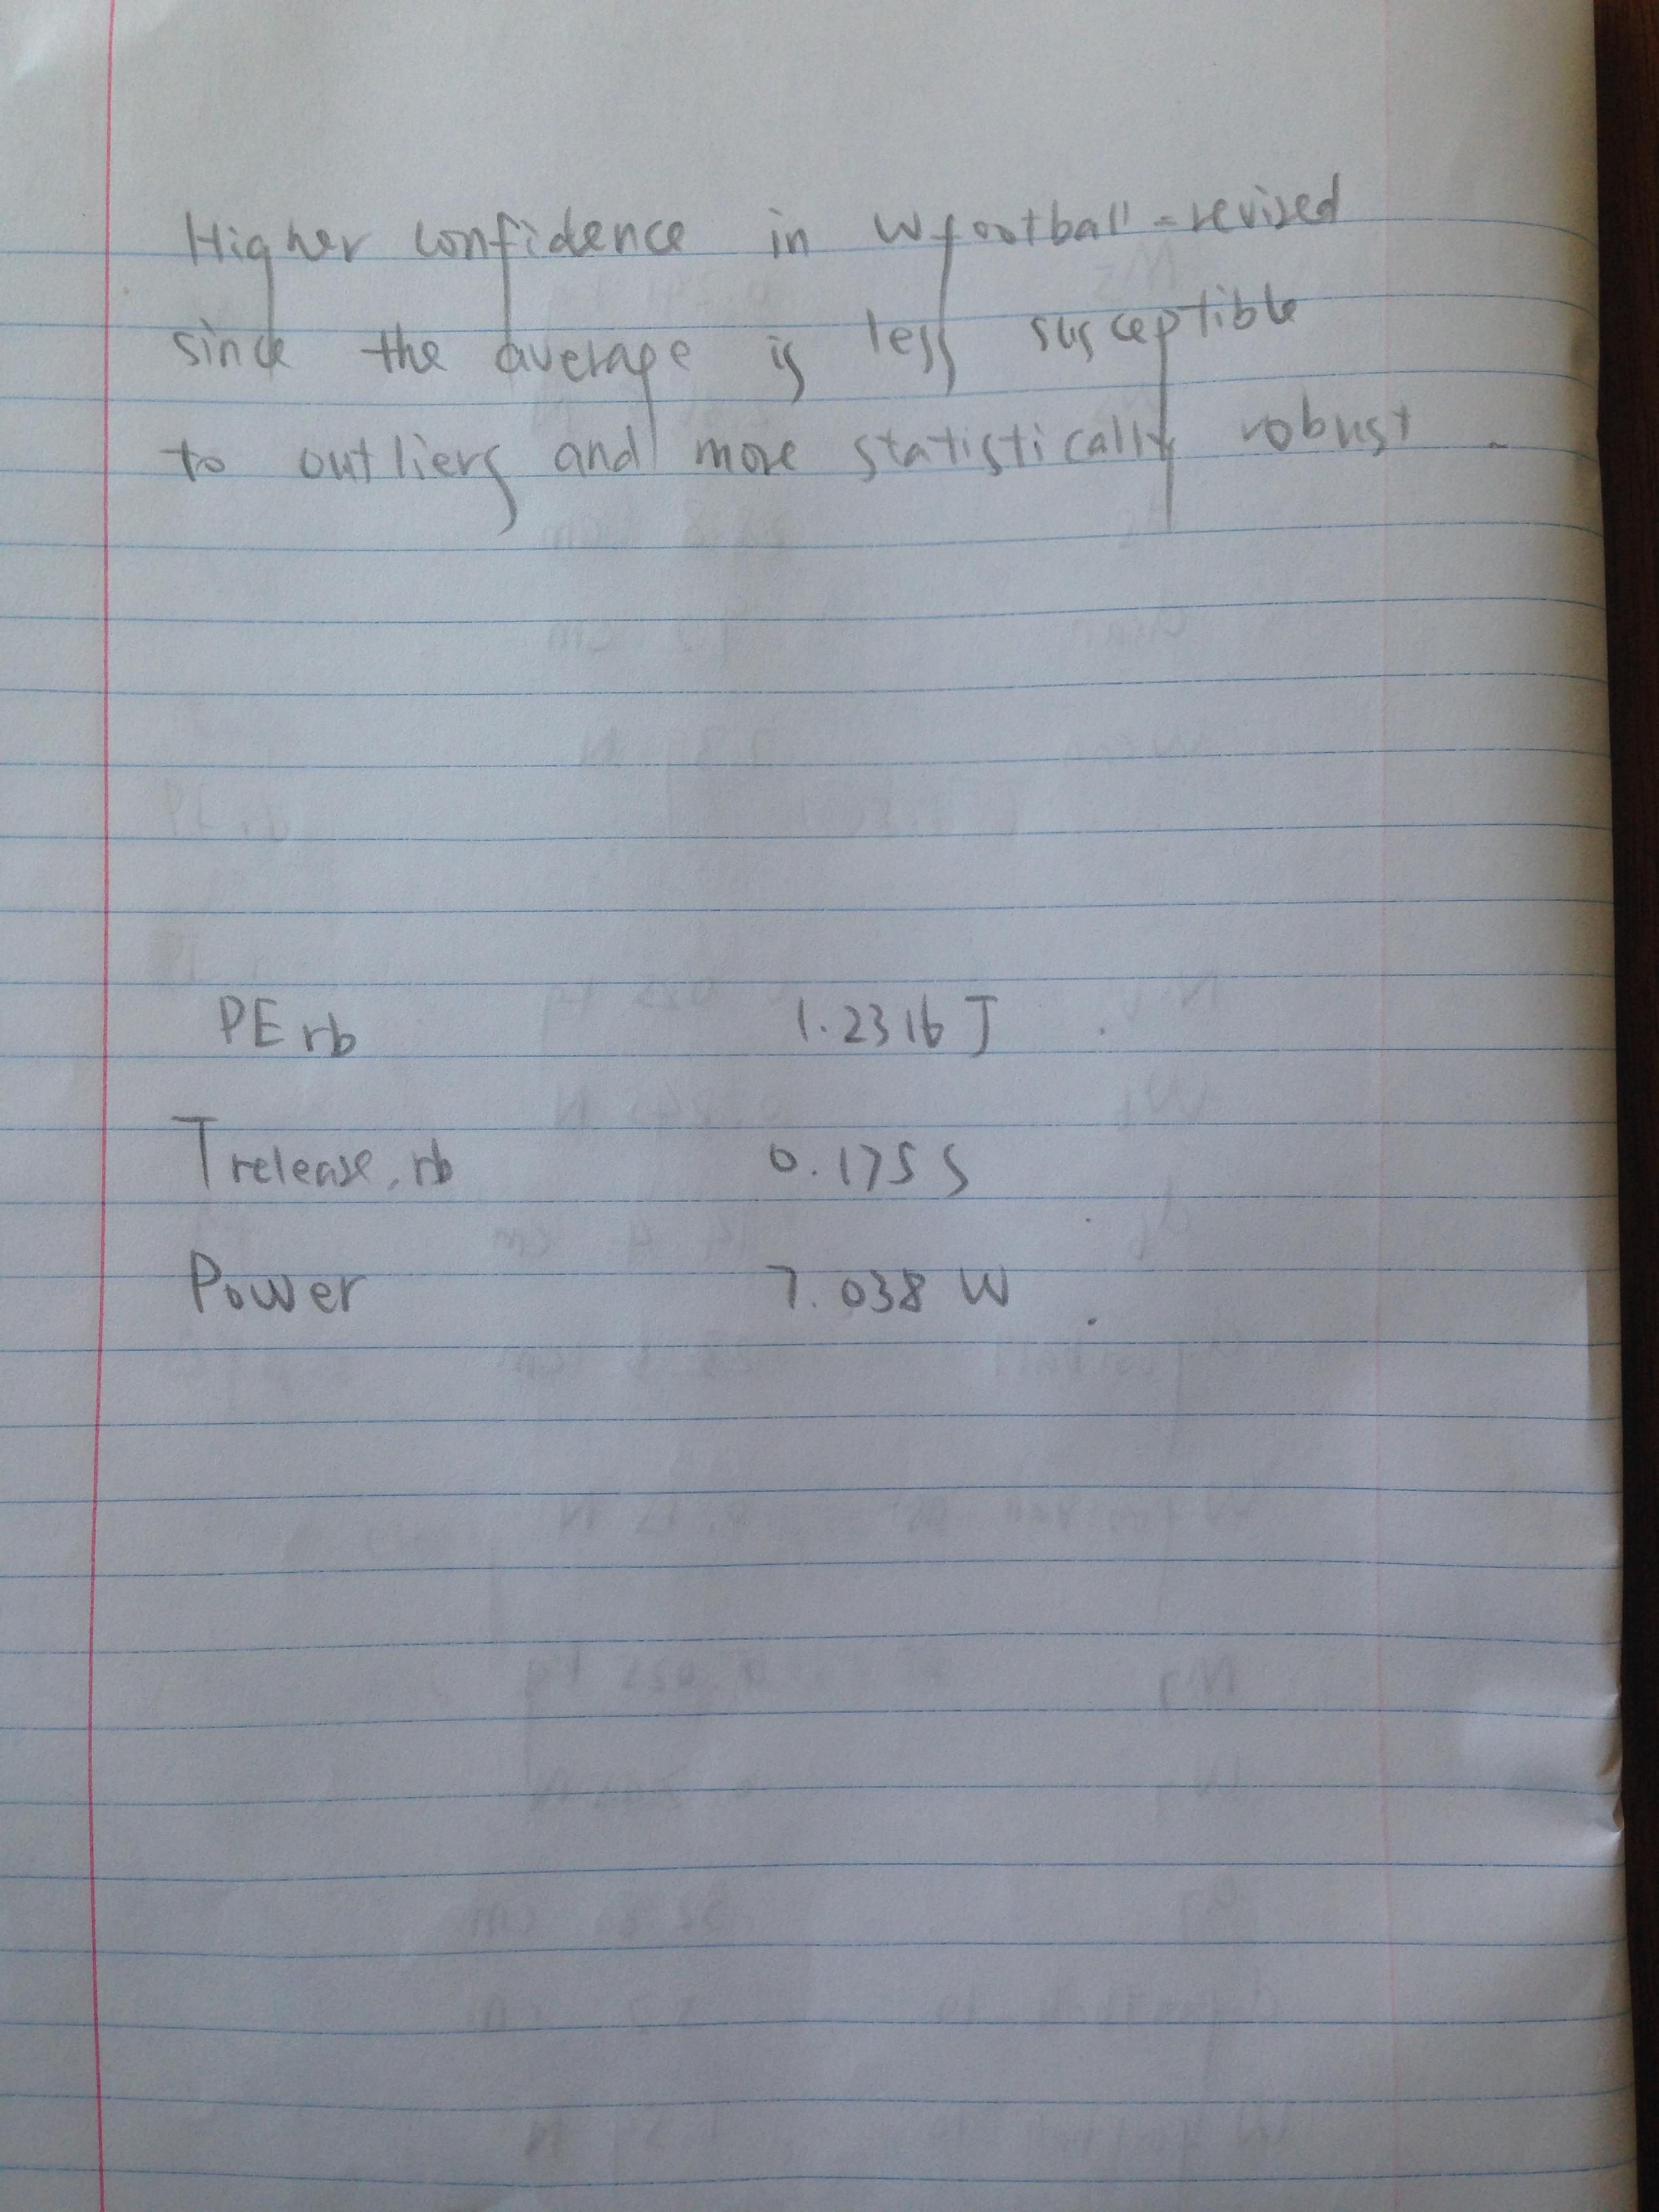 Higher confidence in Wfootball-revised
since the average is less susceptible
to outliers and more statistically robust.
PE rb 1.2316 J
T release, rb 0.175 s
Power 7.038 W